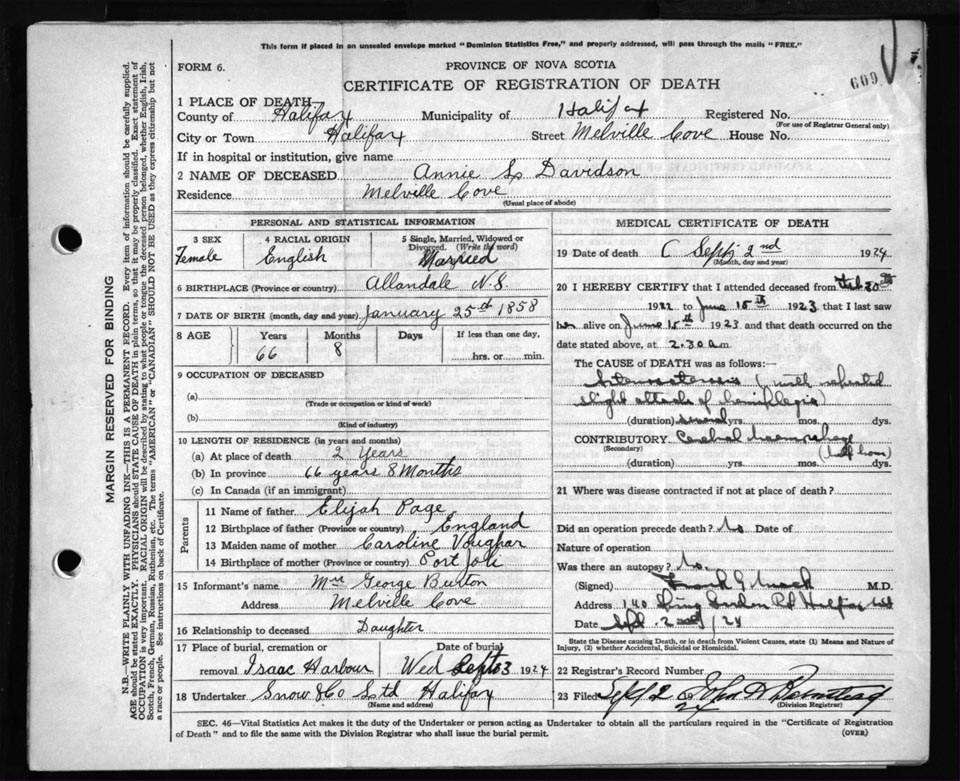 This form if placed in an unsealed envelope marked "Dominion Statistics Free," and properly addressed, will pass through the mails "FREE."
FORM 6.
PROVINCE OF NOVA SCOTIA
CERTIFICATE OF REGISTRATION OF DEATH
609
1 PLACE OF DEATH
County of Halifax Municipality of Halifax Registered No.
(For use of Registrar General only)
City or Town Halifax Street Melville Cove House No.
If in hospital or institution, give name
2 NAME OF DECEASED Annie L. Davidson
Residence Melville Cove
(Usual place of abode)
PERSONAL AND STATISTICAL INFORMATION
3 SEX
Female
4 RACIAL ORIGIN
English
5 Single, Married, Widowed or
Divorced. (Write the word)
Married
6 BIRTHPLACE (Province or country) Allandale N.S.
7 DATE OF BIRTH (month, day and year) January 25th 1858
8 AGE Years Months Days If less than one day,
66 8 hrs. or min.
9 OCCUPATION OF DECEASED
(a)
(Trade or occupation or kind of work)
(b)
(Kind of industry)
10 LENGTH OF RESIDENCE (in years and months)
(a) At place of death 2 Years
(b) In province 66 years 8 Months
(c) In Canada (if an immigrant)
Parents
11 Name of father Elijah Page
12 Birthplace of father (Province or country) England
13 Maiden name of mother Caroline
14 Birthplace of mother (Province or country) Port
15 Informant's name Mrs George Burton
Address Melville Cove
16 Relationship to deceased Daughter
17 Place of burial, cremation or Date of burial
removal Isaac Harbour Wed Sept 3 1924
18 Undertaker Snow & Co Ltd Halifax
(Name and address)
MEDICAL CERTIFICATE OF DEATH
19 Date of death Sept 2nd 1924
(Month, day and year)
20 I HEREBY CERTIFY that I attended deceased from Feb 20th
1922 to June 15th 1923 and that I last saw
her alive on June 15th 1923 and that death occurred on the
date stated above, at 2.30 a.m.
The CAUSE OF DEATH was as follows:
(with repeated
slight attacks of hemiplegia)
(duration) several yrs. mos. dys.
CONTRIBUTORY Cerebral haemorrhage
(Secondary) (half hour)
(duration) yrs. mos. dys.
21 Where was disease contracted if not at place of death?
Did an operation precede death? No Date of
Nature of operation
Was there an autopsy? No.
(Signed) Frank M.D.
Address 140 Halifax
Date Sept. 2nd/24
State the Disease causing Death, or in death from Violent Causes, state (1) Means and Nature of
Injury, (2) whether Accidental, Suicidal or Homicidal.
22 Registrar's Record Number
23 Filed Sept 2 John
24
(Division Registrar)
SEC. 46—Vital Statistics Act makes it the duty of the Undertaker or person acting as Undertaker to obtain all the particulars required in the "Certificate of Registration
of Death" and to file the same with the Division Registrar who shall issue the burial permit.
(OVER)
MARGIN RESERVED FOR BINDING
N.B.—WRITE PLAINLY WITH UNFADING INK—THIS IS A PERMANENT RECORD. Every item of information should be carefully supplied.
AGE should be stated EXACTLY. PHYSICIANS should STATE CAUSE OF DEATH in plain terms, so that it may be properly classified. Exact statement of
OCCUPATION is very important. RACIAL ORIGIN will be described by stating to what people or tongue the deceased person belonged, whether English, Irish,
Scotch, French, German, Russian, Ruthenian, etc. The terms "AMERICAN" or "CANADIAN" SHOULD NOT BE USED as they express citizenship but not
a race or people. See instructions on back of Certificate.